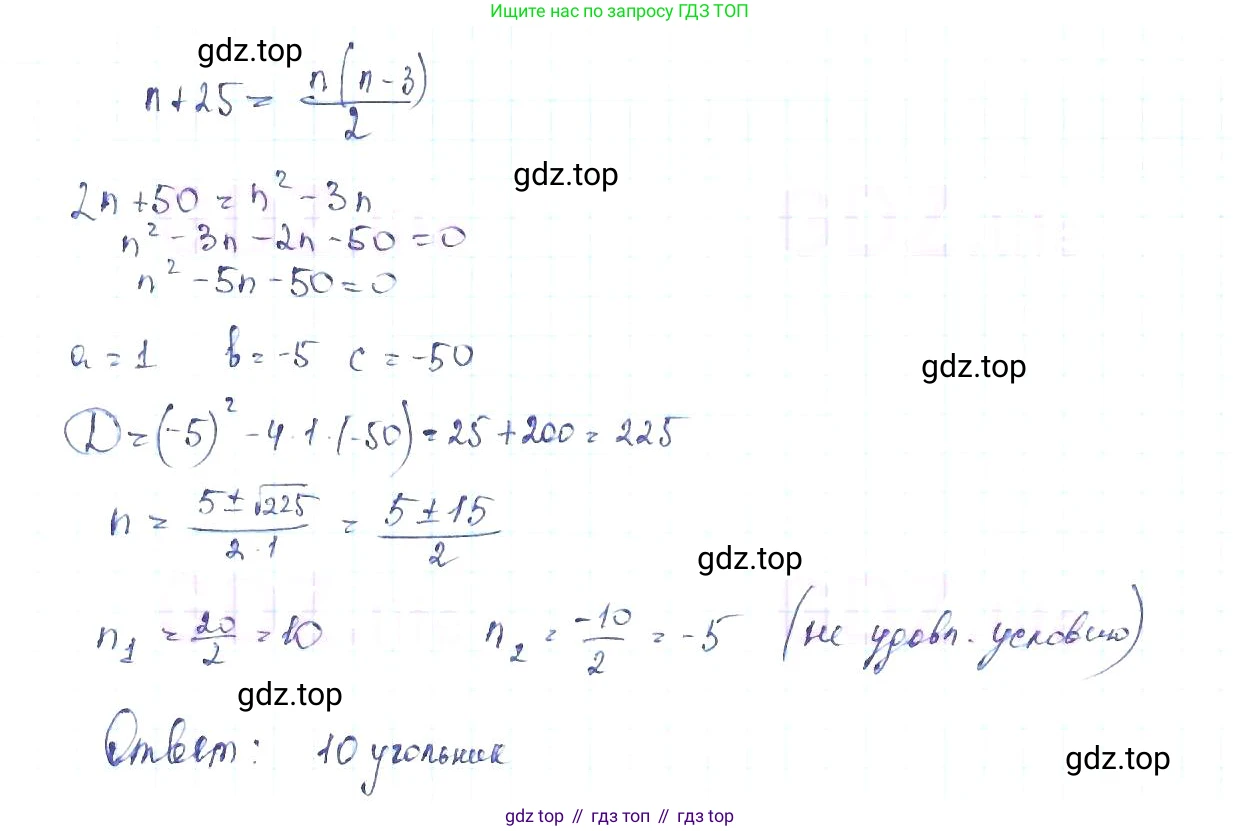 Ищите нас по запросу ГДЗ ТОП
gdz.top
n + 25 = n(n - 3)/2
gdz.top
2n + 50 = n² - 3n
n² - 3n - 2n - 50 = 0
n² - 5n - 50 = 0
a = 1 b = -5 c = -50
gdz.top
D = (-5)² - 4 · 1 · (-50) = 25 + 200 = 225
n = (5 ± √225)/(2 · 1) = (5 ± 15)/2
gdz.top
n₁ = 20/2 = 10 n₂ = -10/2 = -5 (не удовл. условию)
gdz.top
Ответ: 10 угольник
gdz.top
gdz top // гдз топ // гдз top